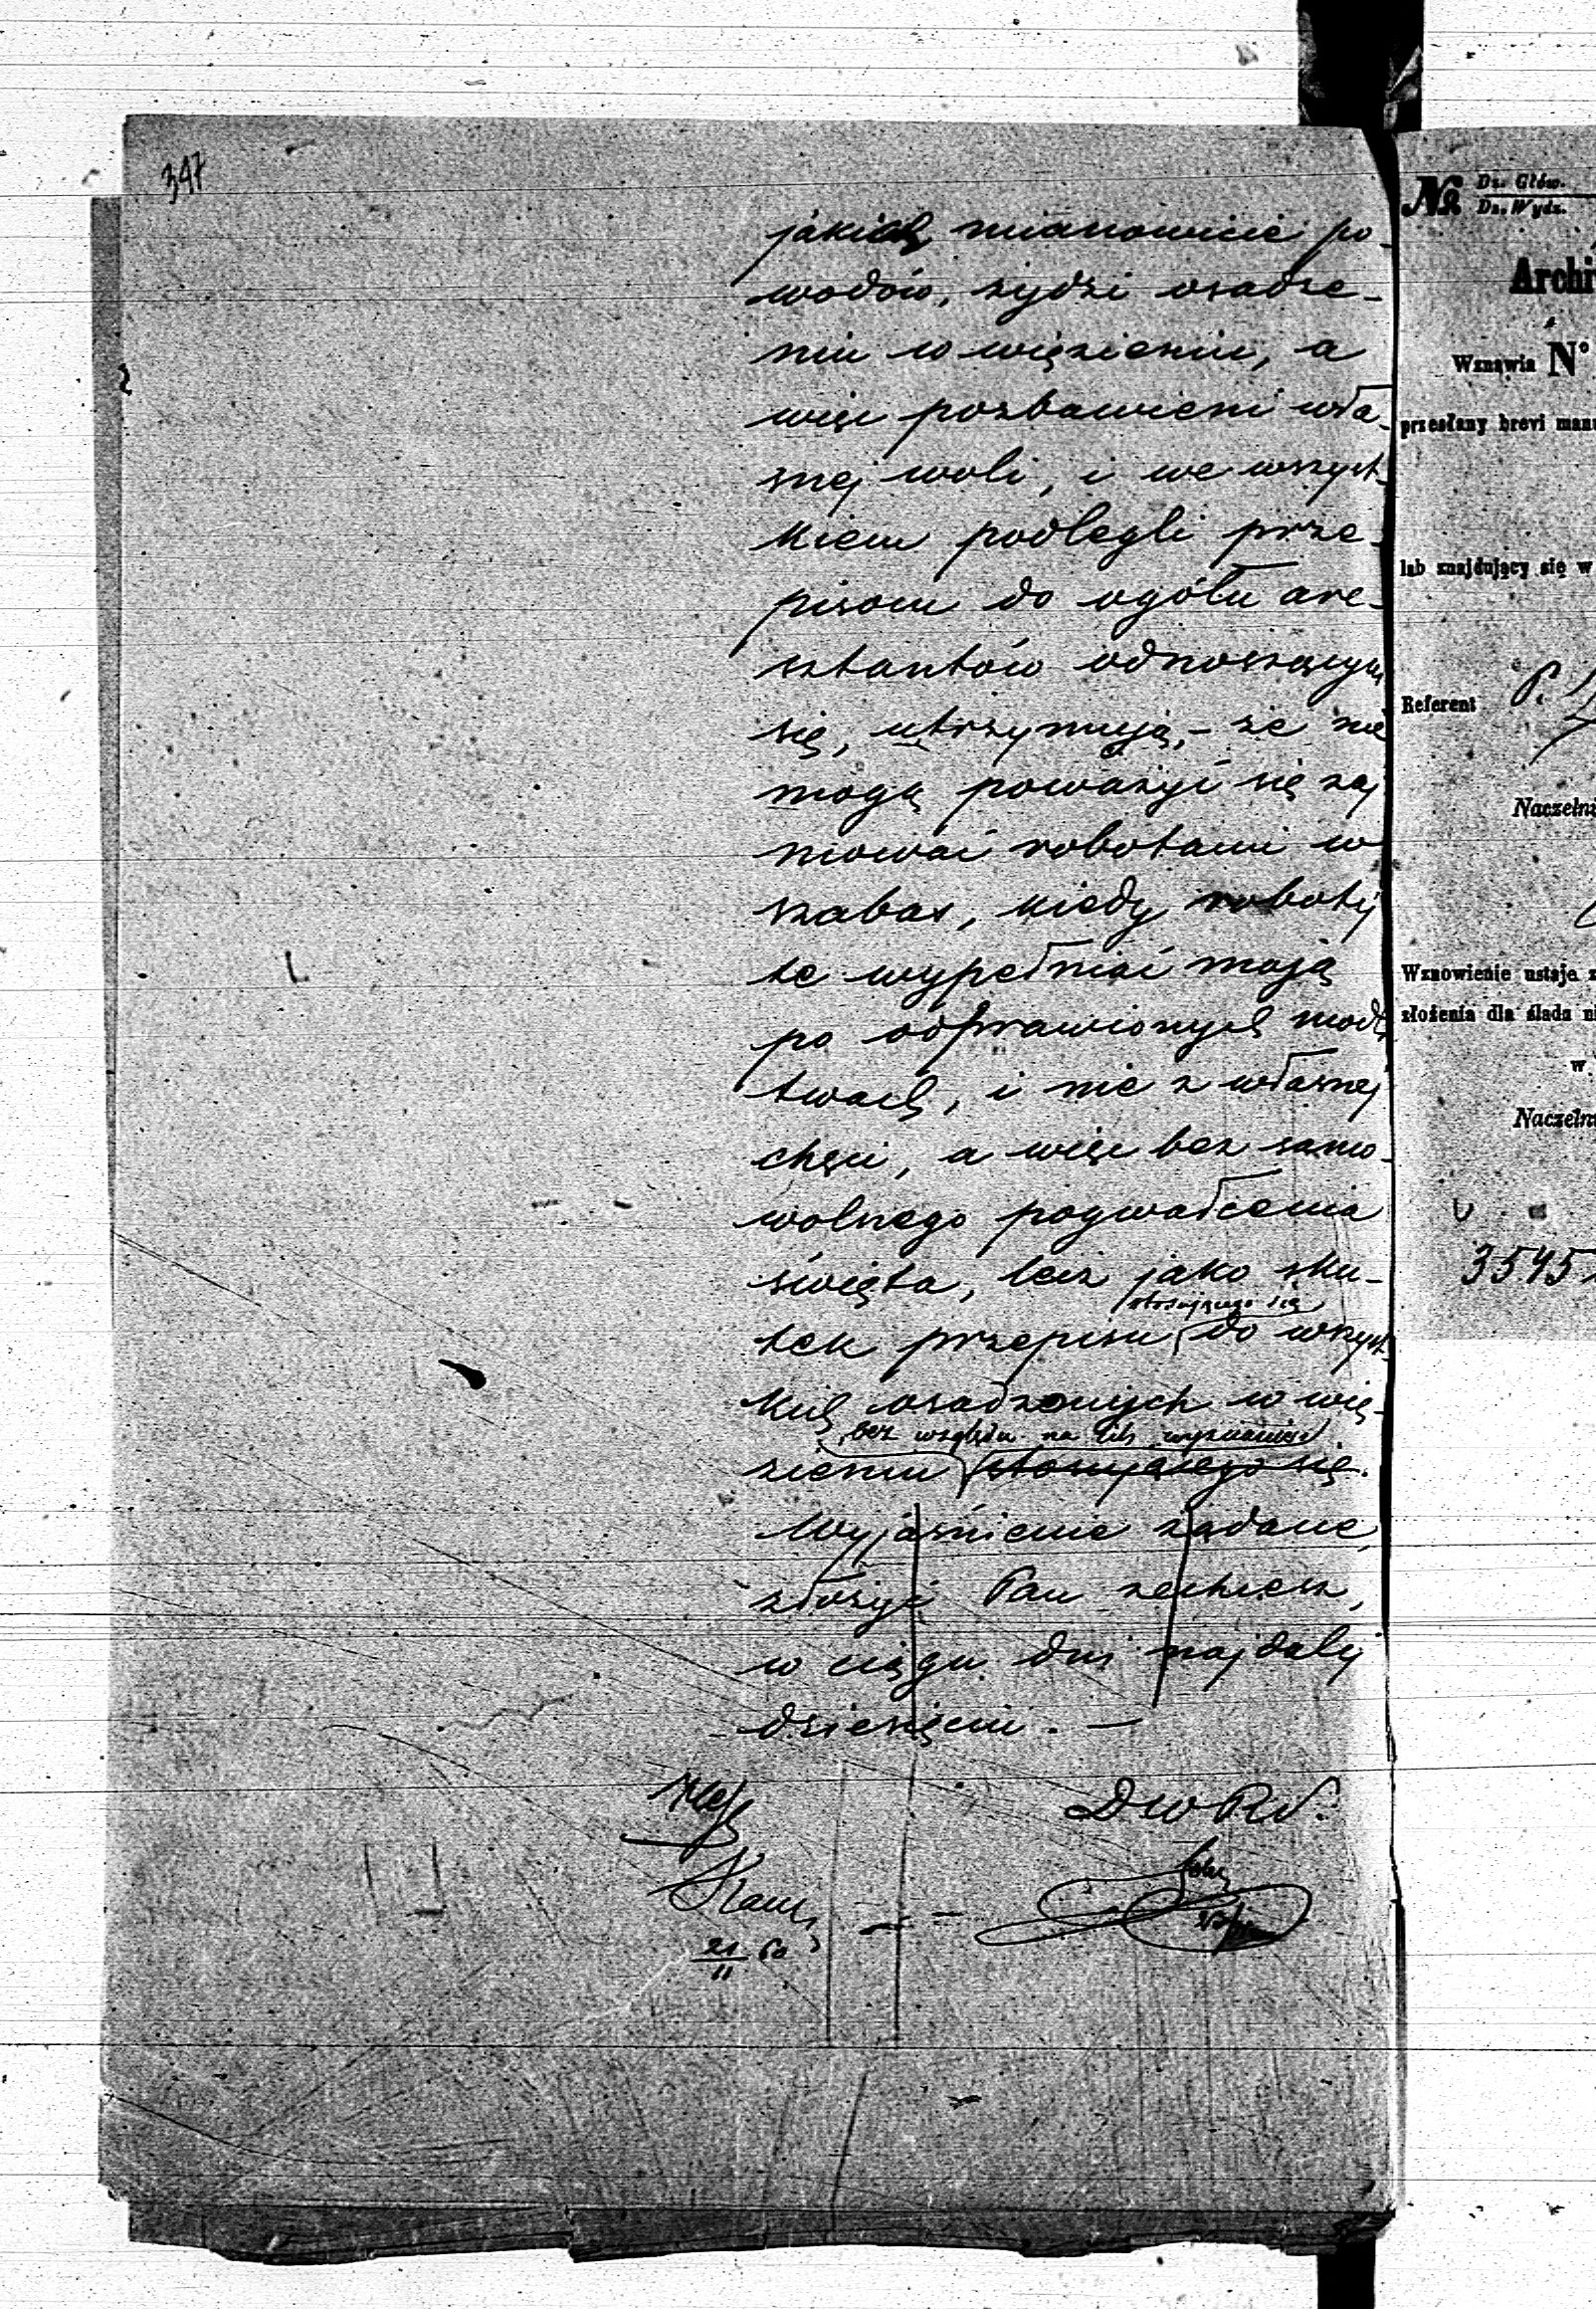 347
jakich mianowicie po-
wodów, żydzi osadze-
niu w więzieniu, a
więc pozbawieni wła-
snej woli, i we wszyst-
kiem podlegli prze-
pisom do ogółu are-
sztantów odnoszącym
się, utrzymują, - że nie
mogą poważyć się zaj
mować robotami w
szabas, kiedy roboty
te wypełniać mają
po odprawionych modl
twach, i nie z własnej
chęci, a więc bez samo-
wolnego pogwałcenia
święta, lecz jako sku-
stosującego się
tek przepisu do wszyst-
kich osadzonych w wię-
bez względu na ich wyznanie
zieniu stosującego się.
Wyjaśnienie żądane,
złożyć Pan zechcesz,
w ciągu dni najdalej
dziesięciu. —
D W R S.
21/11 60
№ Dz. Głów.
Dz. Wydz.
Archi
Wznawia N°
przesłany brevi manu
lub znajdujący się w
Referent P.
Naczelni
Wznowienie ustaje z
złożenia dla śladu ni
w
Naczelni
3545